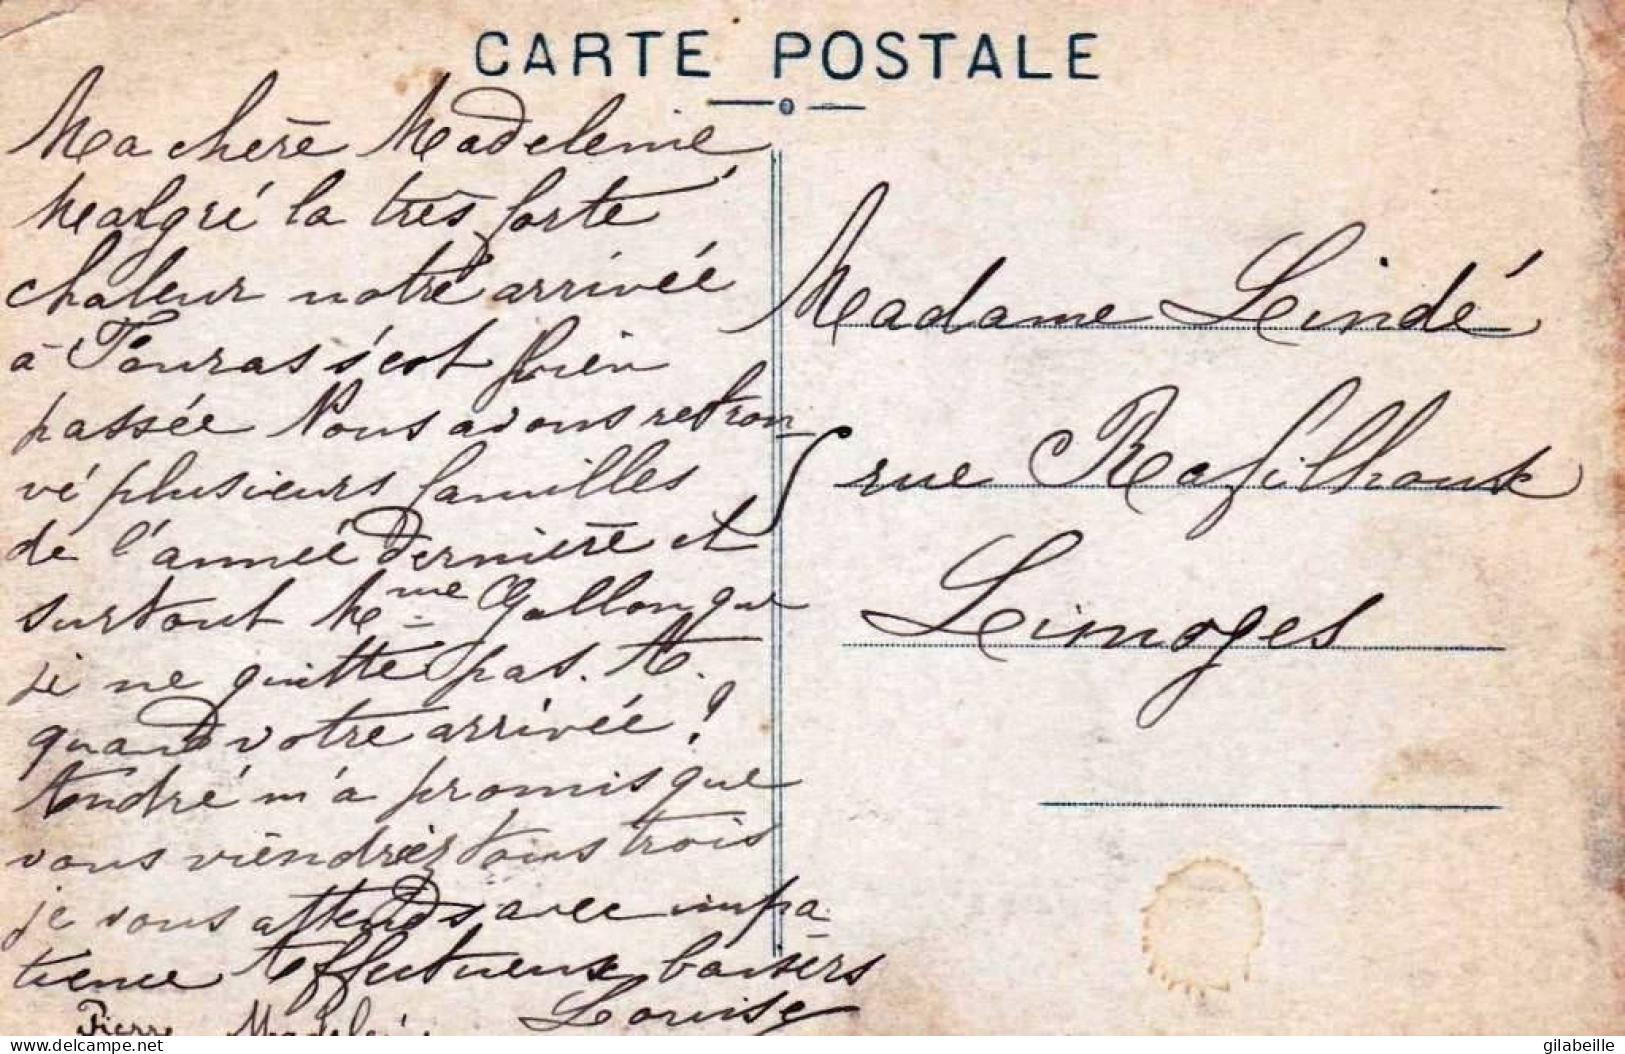 CARTE POSTALE
Ma chère Madeleine,
Malgré la très forte
chaleur notre arrivée
à Fouras s'est bien
passée Nous avons retrou-
vé plusieurs familles
de l'année dernière et
surtout Mme Gallon que
je ne quitte pas. A.
quand votre arrivée !
André m'a promis que
vous viendriez tous trois
je vous attends avec impa-
tience Affectueux baisers
Louise
Pierre Madeleine
Madame Lindé
5 rue Rafilhoux
Limoges
delcampe.net
gilabeille